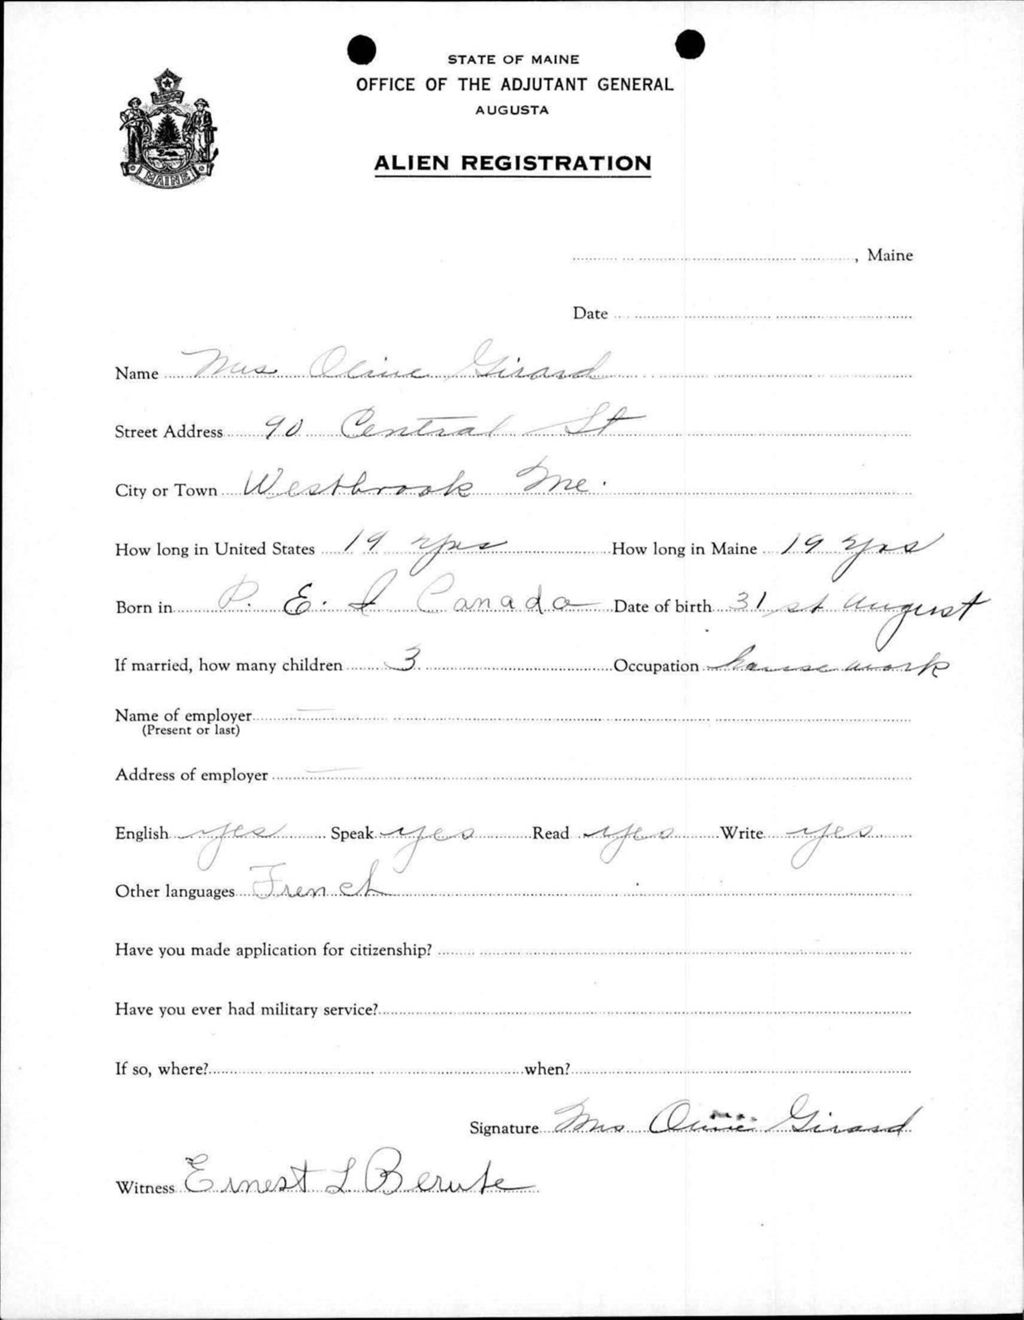 STATE OF MAINE
OFFICE OF THE ADJUTANT GENERAL
AUGUSTA
ALIEN REGISTRATION
MAINE
, Maine
Date
Name Mrs Olive Girard
Street Address 90 Central St
City or Town Westbrook Me.
How long in United States 19 yrs How long in Maine 19 yrs
Born in P. E. I Canada Date of birth 31st August
If married, how many children 3 Occupation house work
Name of employer
(Present or last)
Address of employer
English yes Speak yes Read yes Write yes
Other languages French
Have you made application for citizenship?
Have you ever had military service?
If so, where? when?
Signature Mrs Olive Girard
Witness Ernest L